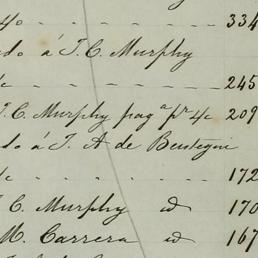 40 - - - - - 334
do á T. C. Murphy
/c - - - - - - 245
T. C. Murphy pag.ª p.r 4/c 209
do á T. A de Beistegui
/c - - - - - - 172
C. Murphy id 170
M. Carrera id 167